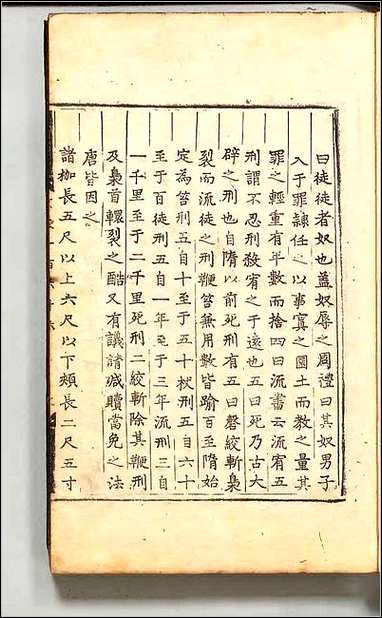 曰徒徒者奴也蓋奴辱之周禮曰其奴男子
入于罪隷任之以事寘之圜土而教之量其
罪之輕重有年數而捨四曰流書云流宥五
刑謂不忍刑殺宥之于遠也五曰死乃古大
辟之刑也自隋以前死刑有五曰磬絞斬梟
裂而流徒之刑鞭笞兼用數皆踰百至隋始
定為笞刑五自十至于五十杖刑五自六十
至于百徒刑五自一年至于三年流刑三自
一千里至于二千里死刑二絞斬除其鞭刑
及梟首轘裂之酷又有議請減贖當免之法
唐皆因之
諸枷長五尺以上六尺以下頰長二尺五寸